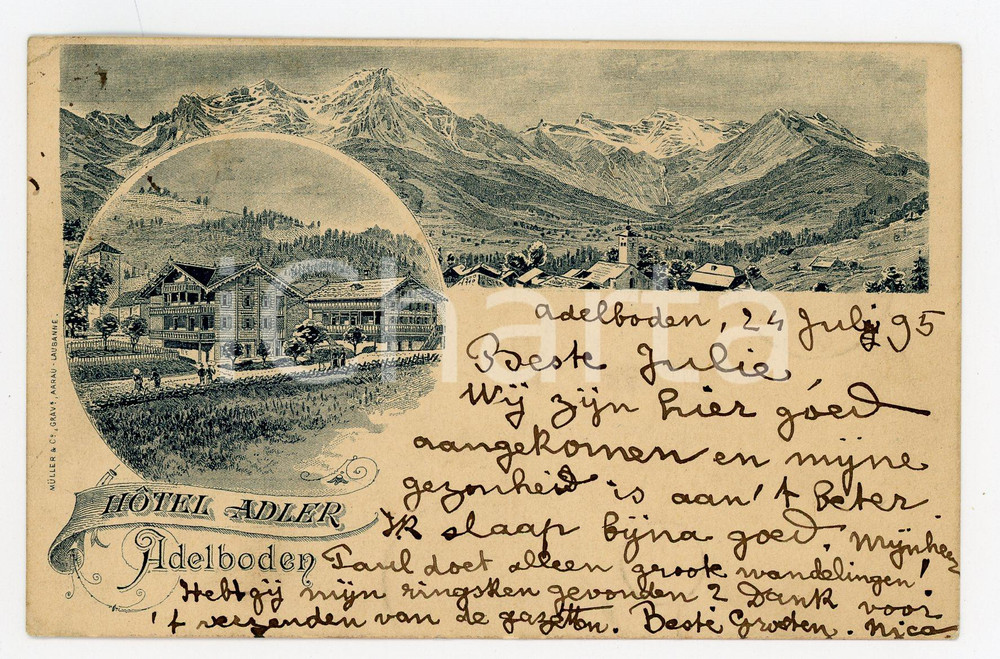 MÜLLER & Co, GRAVs, AARAU-LAUSANNE.
HÔTEL ADLER
Adelboden
iCharta
Adelboden, 24 July 95
Beste Julie
Wij zijn hier goed
aangekomen en mijne
gezonheid is aan 't beter.
Ik slaap bijna goed. Mijnheer
Paul doet alleen groote wandelingen!
Hebt gij mijn ringsken gevonden? Dank voor
't verzenden van de gazetten. Beste Groeten. Nica.